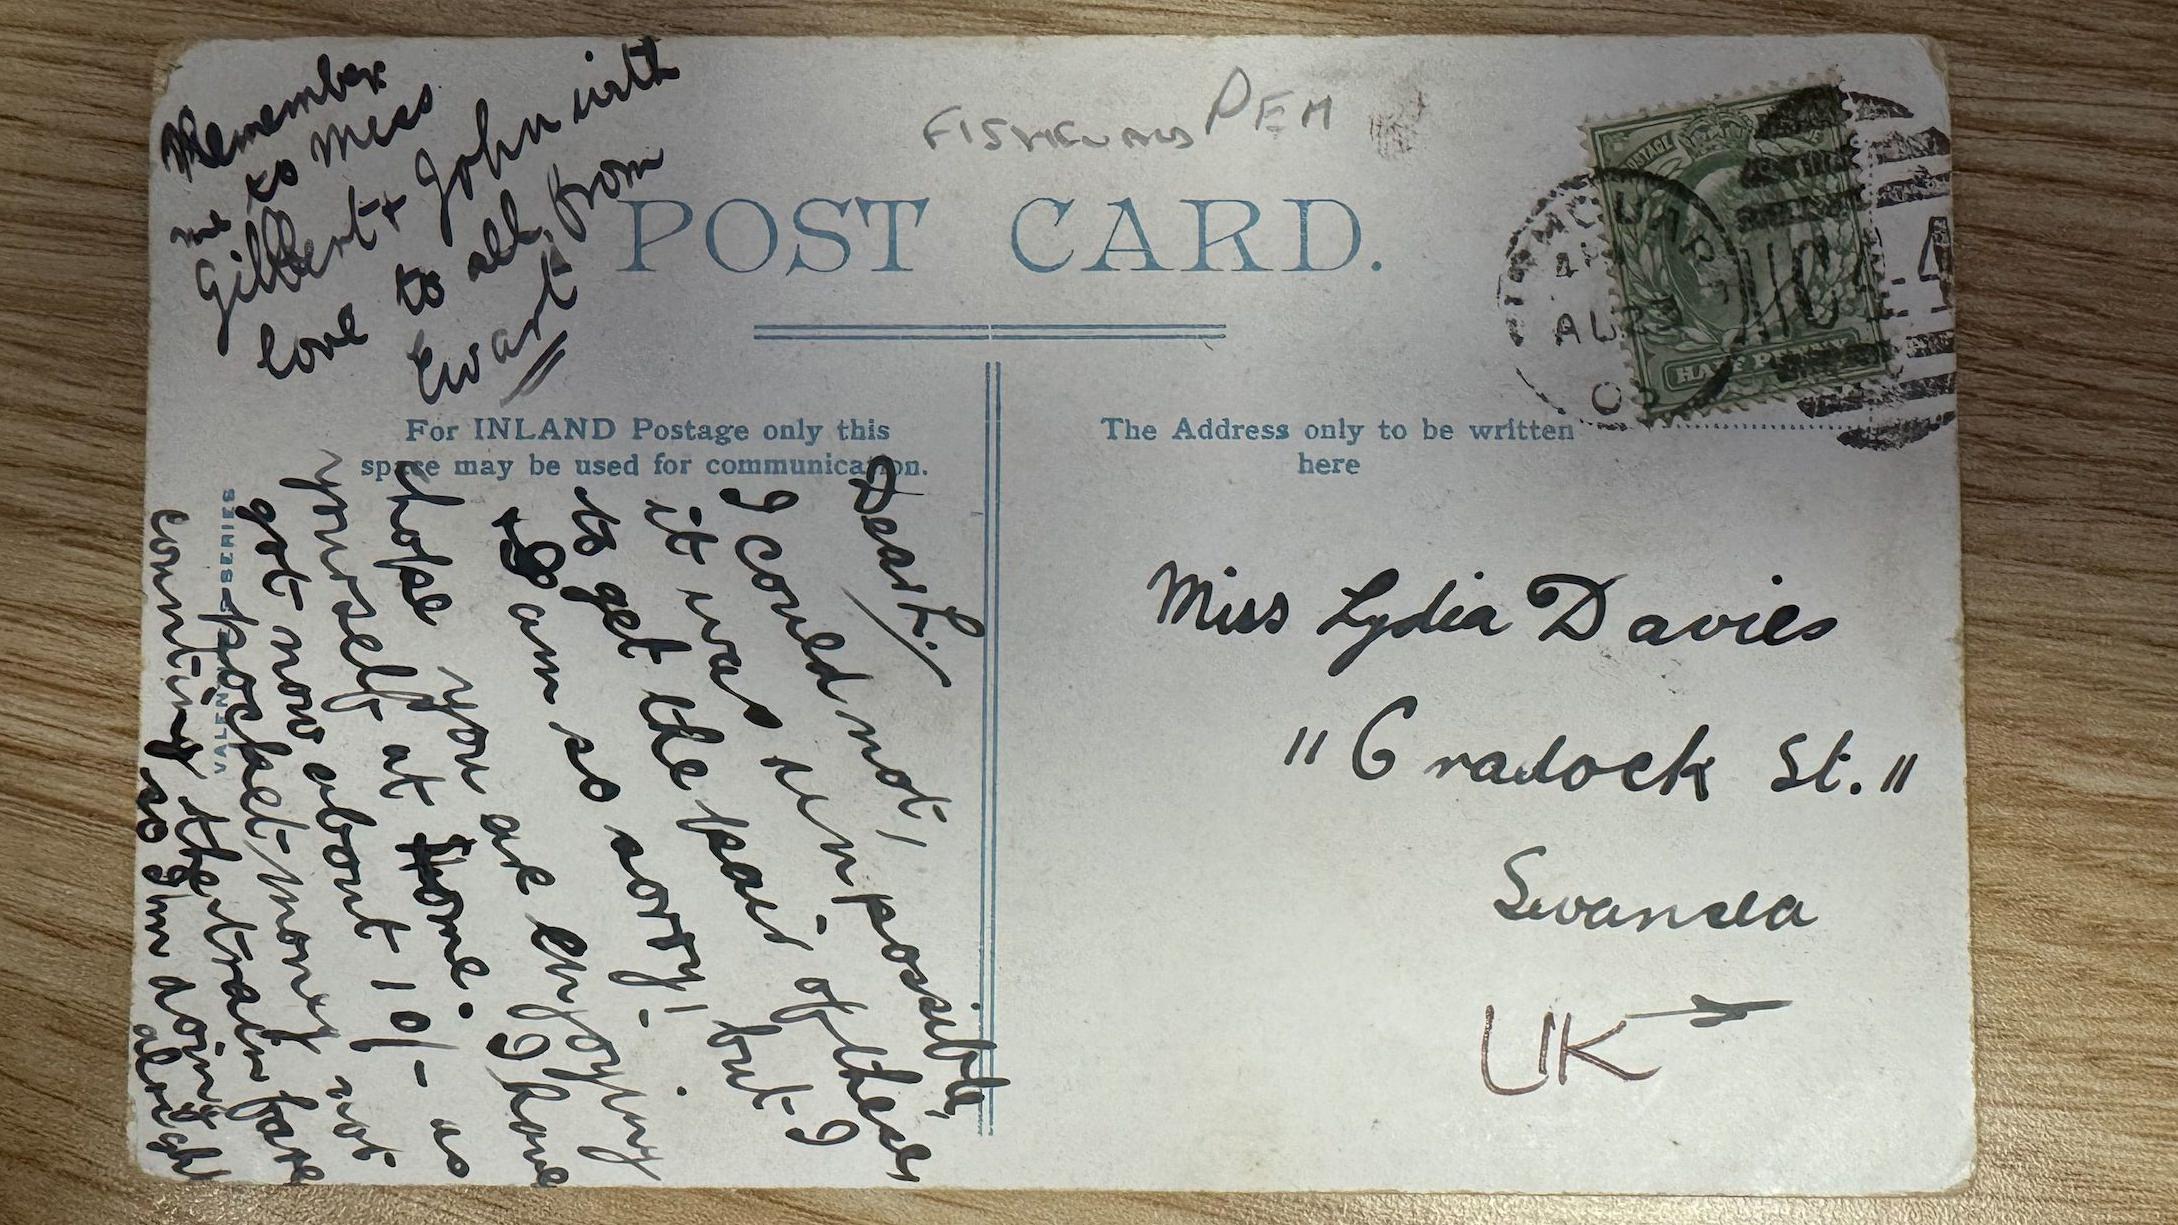 POST CARD.
For INLAND Postage only this
space may be used for communication.
The Address only to be written
here
HALF PENNY
Miss Lydia Davies
"Cradock St."
Swansea
UK
Dear L.,
I could not,
it was impossible,
to get the pair of these,
& I am so sorry! but I
hope you are enjoying
yourself at Home. I have
got now about 10/- as
pocket money not
counting the train fare
so I'm doing
alright
Remember
me to Miss
Gilbert & John with
love to all, from
Ewart
VALENTINE'S SERIES
FISHGUARD PEM